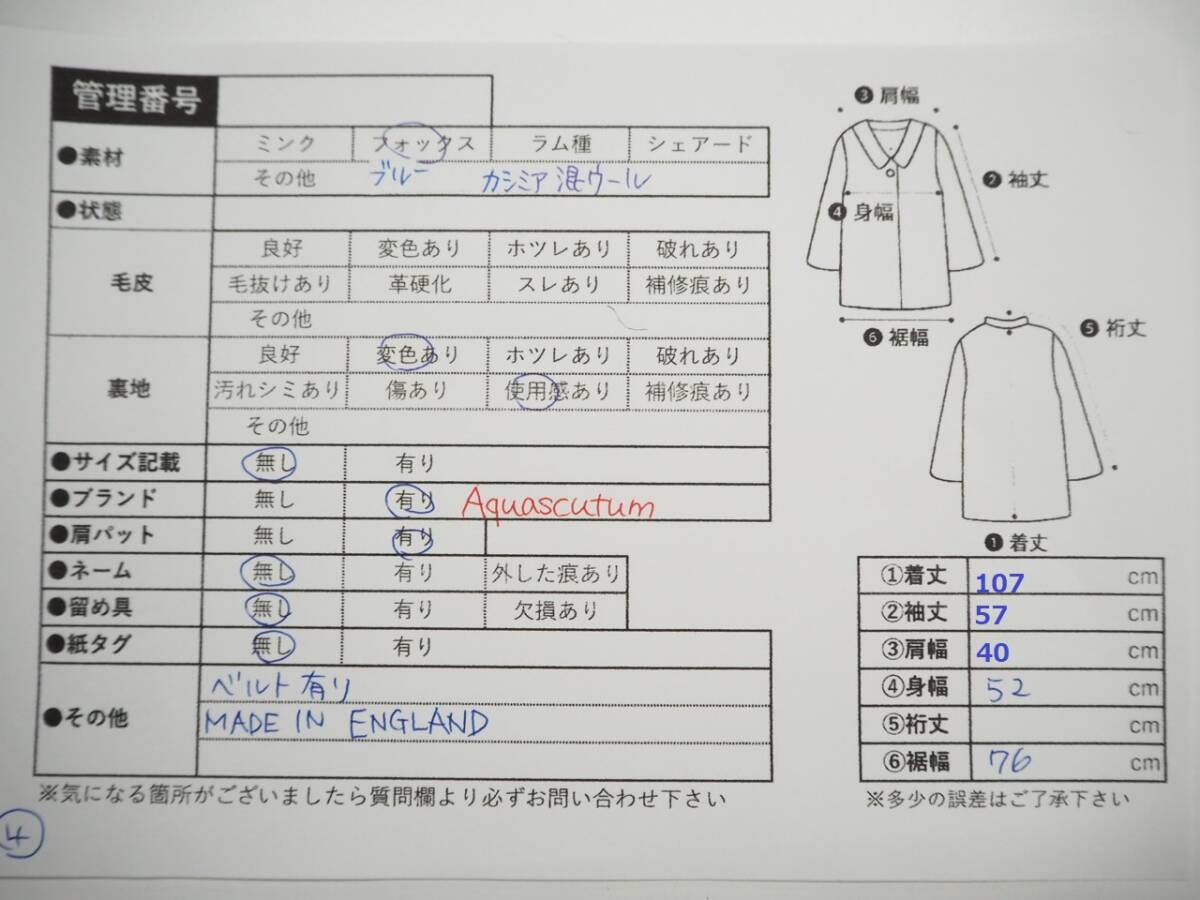 管理番号
●素材 ミンク フォックス ラム種 シェアード
その他 ブルー カシミア混ウール
●状態
毛皮
良好 変色あり ホツレあり 破れあり
毛抜けあり 革硬化 スレあり 補修痕あり
その他
裏地
良好 変色あり ホツレあり 破れあり
汚れシミあり 傷あり 使用感あり 補修痕あり
その他
●サイズ記載 無し 有り
●ブランド 無し 有り Aquascutum
●肩パット 無し 有り
●ネーム 無し 有り 外した痕あり
●留め具 無し 有り 欠損あり
●紙タグ 無し 有り
●その他
ベルト有り
MADE IN ENGLAND
※気になる箇所がございましたら質問欄より必ずお問い合わせ下さい
4
❸肩幅
❷袖丈
❹身幅
❻裾幅
❺裄丈
❶着丈
①着丈 107 cm
②袖丈 57 cm
③肩幅 40 cm
④身幅 52 cm
⑤裄丈 cm
⑥裾幅 76 cm
※多少の誤差はご了承下さい